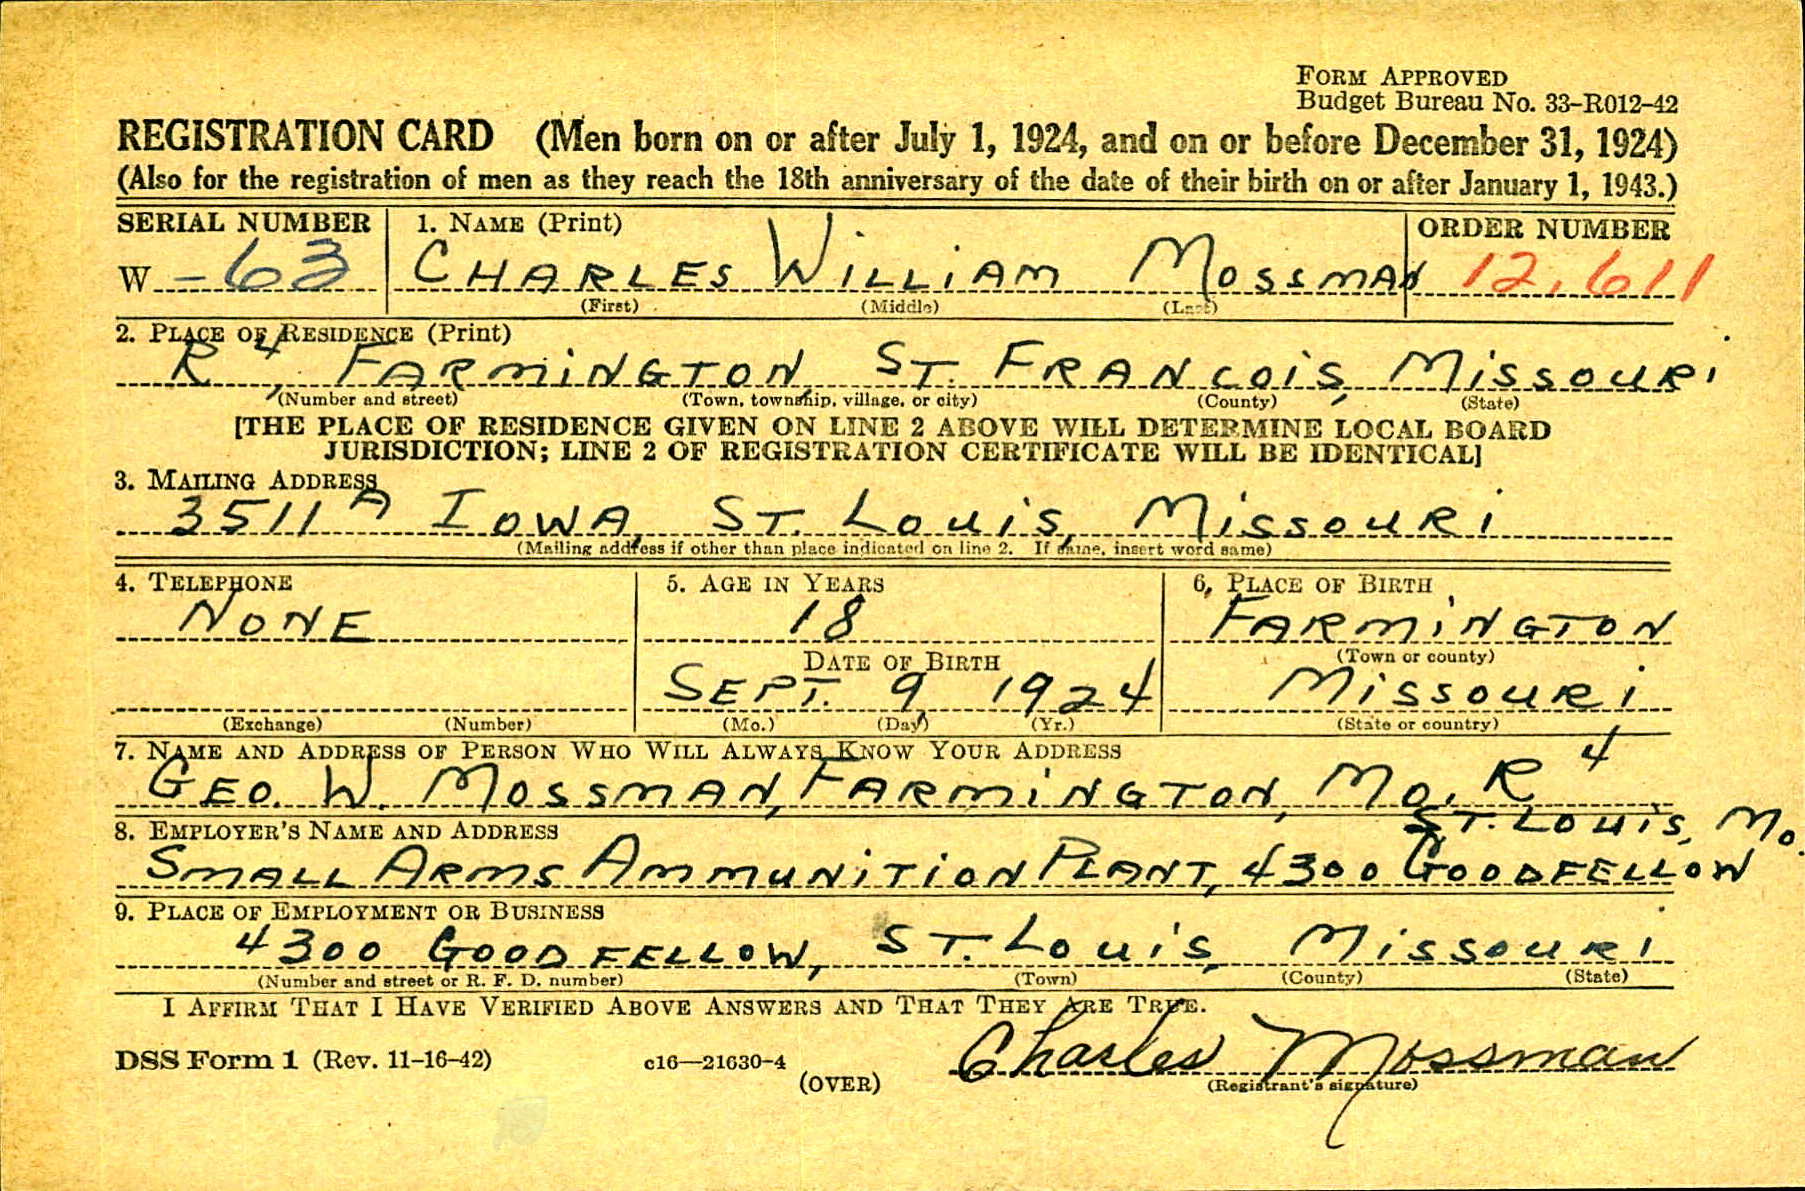 FORM APPROVED
Budget Bureau No. 33-R012-42
REGISTRATION CARD (Men born on or after July 1, 1924, and on or before December 31, 1924)
(Also for the registration of men as they reach the 18th anniversary of the date of their birth on or after January 1, 1943.)
SERIAL NUMBER 1. NAME (Print) ORDER NUMBER
W -63 CHARLES WILLIAM MOSSMAN 12,611
(First) (Middle) (Last)
2. PLACE OF RESIDENCE (Print)
R 4, FARMINGTON, ST. FRANCOIS, MISSOURI
(Number and street) (Town, township, village, or city) (County) (State)
[THE PLACE OF RESIDENCE GIVEN ON LINE 2 ABOVE WILL DETERMINE LOCAL BOARD
JURISDICTION; LINE 2 OF REGISTRATION CERTIFICATE WILL BE IDENTICAL]
3. MAILING ADDRESS
3511 A IOWA, ST. LOUIS, MISSOURI
(Mailing address if other than place indicated on line 2. If same, insert word same)
4. TELEPHONE 5. AGE IN YEARS 6. PLACE OF BIRTH
NONE 18 FARMINGTON
DATE OF BIRTH (Town or county)
SEPT. 9, 1924 MISSOURI
(Exchange) (Number) (Mo.) (Day) (Yr.) (State or country)
7. NAME AND ADDRESS OF PERSON WHO WILL ALWAYS KNOW YOUR ADDRESS
GEO. W. MOSSMAN, FARMINGTON, MO. R 4
8. EMPLOYER'S NAME AND ADDRESS ST. LOUIS, MO.
SMALL ARMS AMMUNITION PLANT, 4300 GOODFELLOW
9. PLACE OF EMPLOYMENT OR BUSINESS
4300 GOODFELLOW, ST. LOUIS, MISSOURI
(Number and street or R. F. D. number) (Town) (County) (State)
I AFFIRM THAT I HAVE VERIFIED ABOVE ANSWERS AND THAT THEY ARE TRUE.
DSS Form 1 (Rev. 11-16-42) c16—21630-4 Charles Mossman
(OVER) (Registrant's signature)